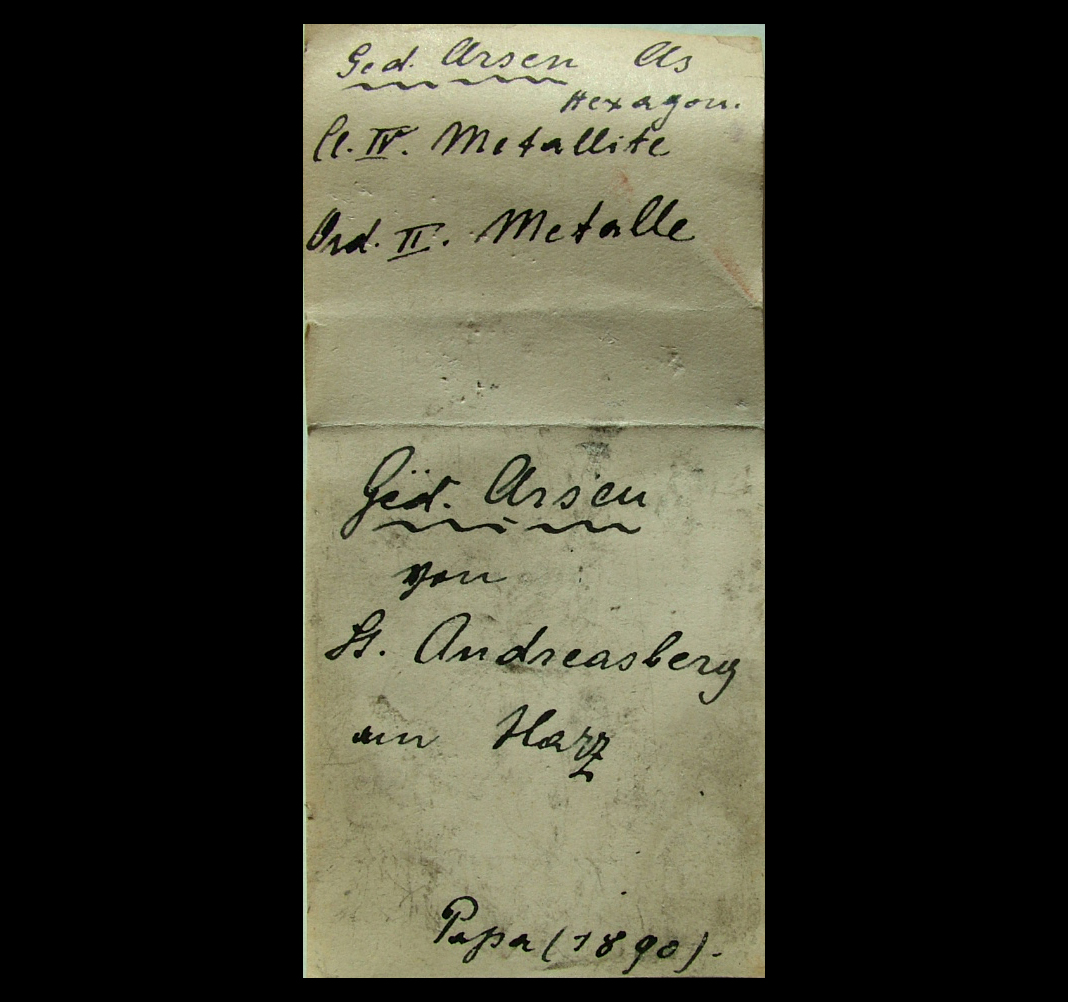 Ged. Arsen As
Hexagon.
Cl. IV. Metallite
Ord. II. Metalle
Ged. Arsen
von
St. Andreasberg
am Harz
Papa (1890).